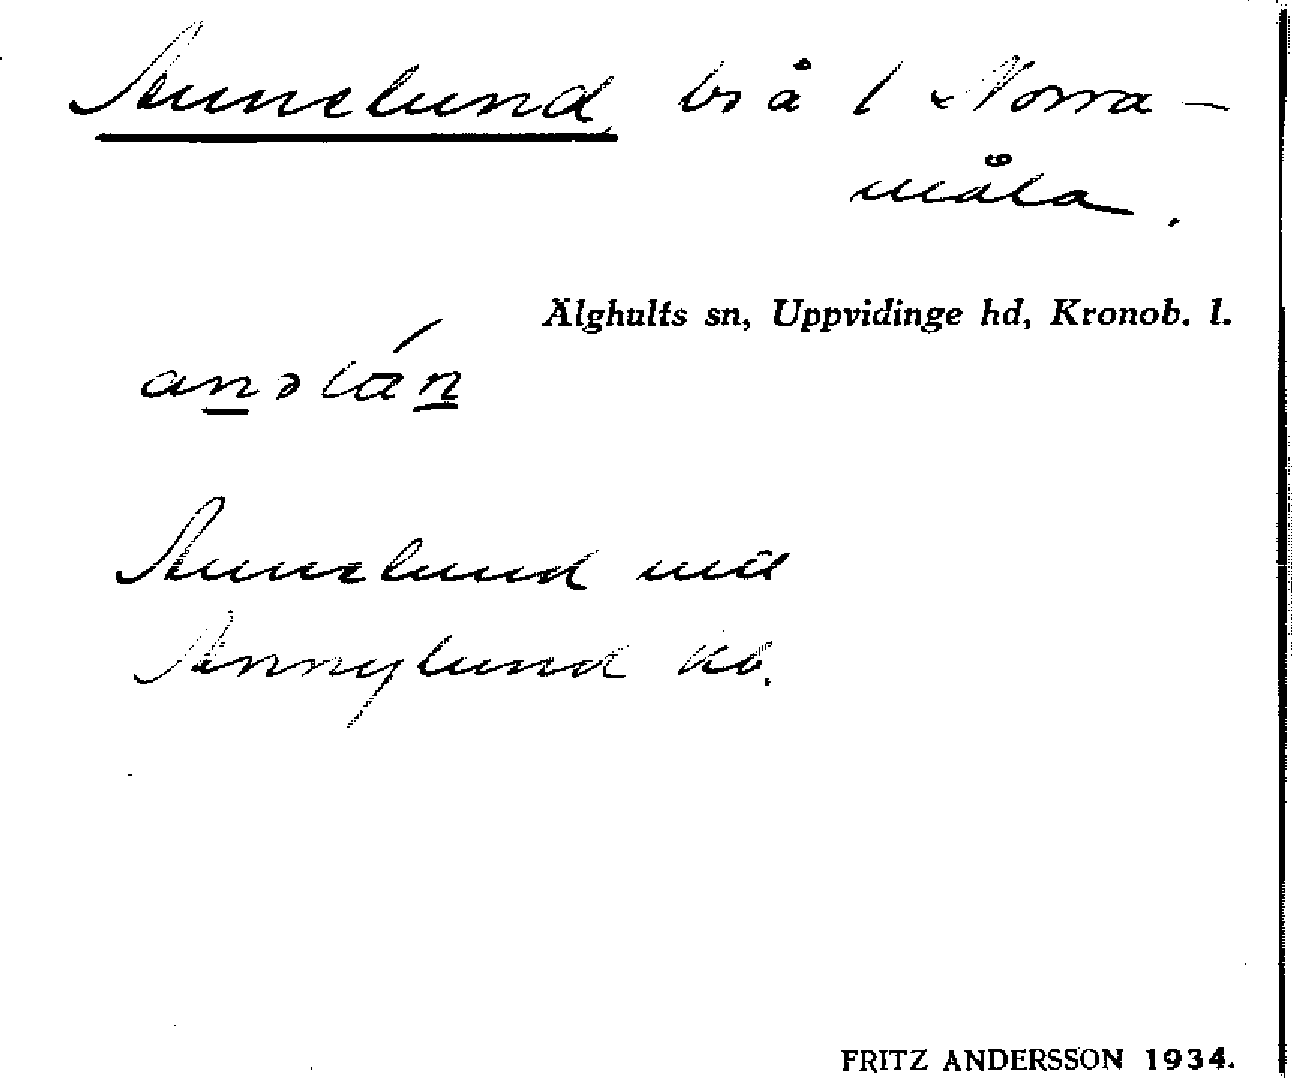 Annelund bs å l Norra-
måla.
Älghults sn, Uppvidinge hd, Kronob. l.
Annelund
Annylund kb.
FRITZ ANDERSSON 1934.